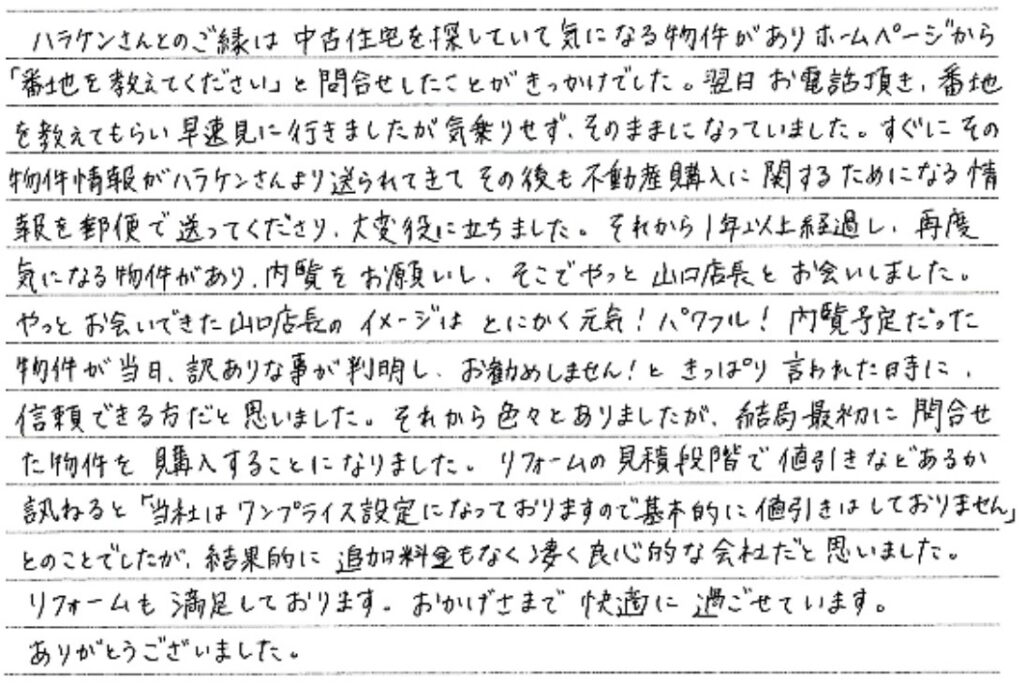 ハラケンさんとのご縁は中古住宅を探していて気になる物件がありホームページから
「番地を教えてください」と問合せしたことがきっかけでした。翌日お電話頂き、番地
を教えてもらい早速見に行きましたが気乗りせず、そのままになっていました。すぐにその
物件情報がハラケンさんより送られてきてその後も不動産購入に関するためになる情
報を郵便で送ってくださり、大変役に立ちました。それから1年以上経過し、再度
気になる物件があり、内覧をお願いし、そこでやっと山口店長とお会いしました。
やっとお会いできた山口店長のイメージはとにかく元気!パワフル!内覧予定だった
物件が当日、訳ありな事が判明し、お勧めしません!ときっぱり言われた時に、
信頼できる方だと思いました。それから色々とありましたが、結局最初に問合せ
た物件を購入することになりました。リフォームの見積段階で値引きなどあるか
訊ねると「当社はワンプライス設定になっておりますので基本的に値引きはしておりません」
とのことでしたが、結果的に追加料金もなく凄く良心的な会社だと思いました。
リフォームも満足しております。おかげさまで快適に過ごせています。
ありがとうございました。